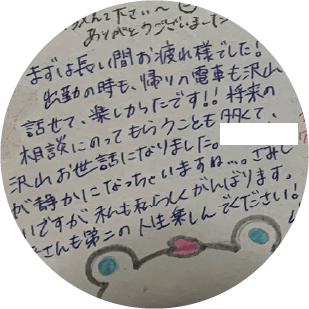 んで下さい〜
ありがとうございました
まずは長い間お疲れ様でした!
出勤の時も、帰りの電車も沢山
話せて、楽しかったです!!将来の
相談にのってもらうことも多くて、
沢山お世話になりました。
が静かになっちゃいますね...。さみし
いですが私も私らしくがんばります。
さんも第二の人生楽しんでください!